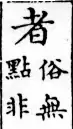 者
俗無
點非